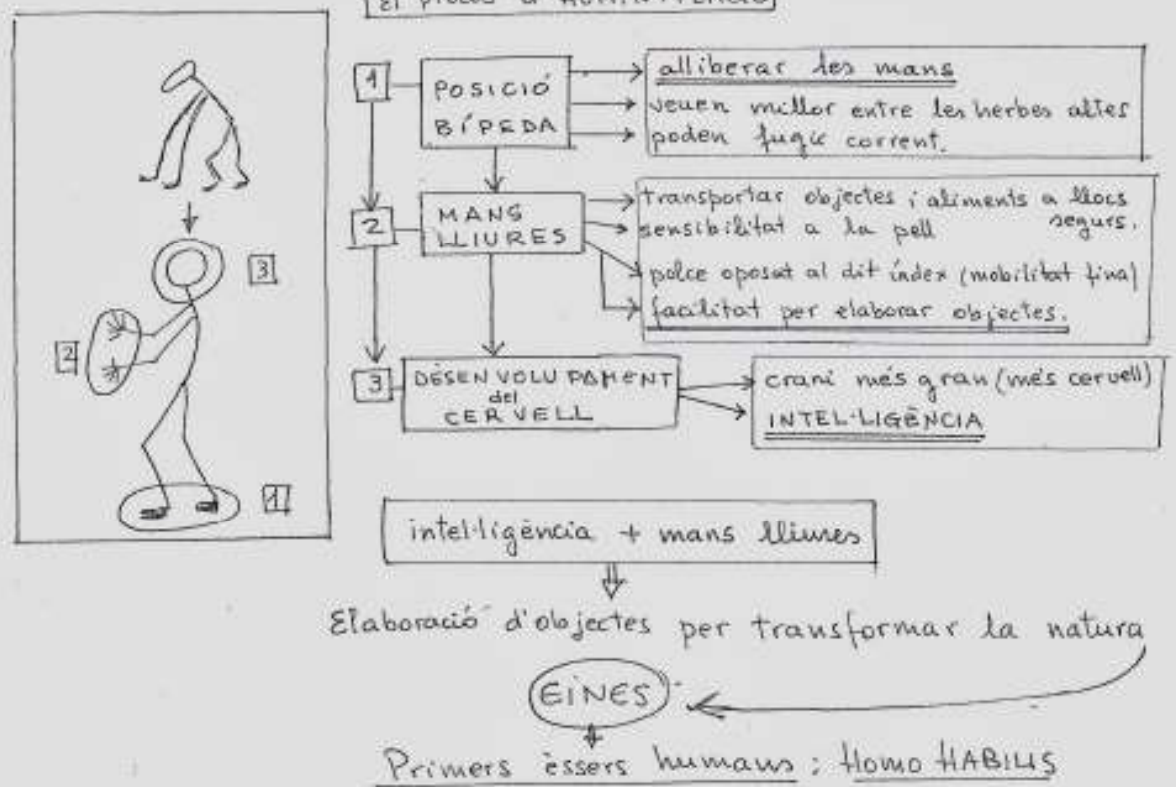 El procés d'HOMINITZACIÓ
1
POSICIÓ
BÍPEDA
alliberar les mans
veuen millor entre les herbes altes
poden fugir corrent.
2
MANS
LLIURES
transportar objectes i aliments a llocs
segurs.
sensibilitat a la pell
polce oposat al dit índex (mobilitat fina)
facilitat per elaborar objectes.
3
DESENVOLUPAMENT
del
CERVELL
crani més gran (més cervell)
INTEL·LIGÈNCIA
3
2
1
intel·ligència + mans lliures
Elaboració d'objectes per transformar la natura
EINES
Primers èssers humans : Homo HABILIS